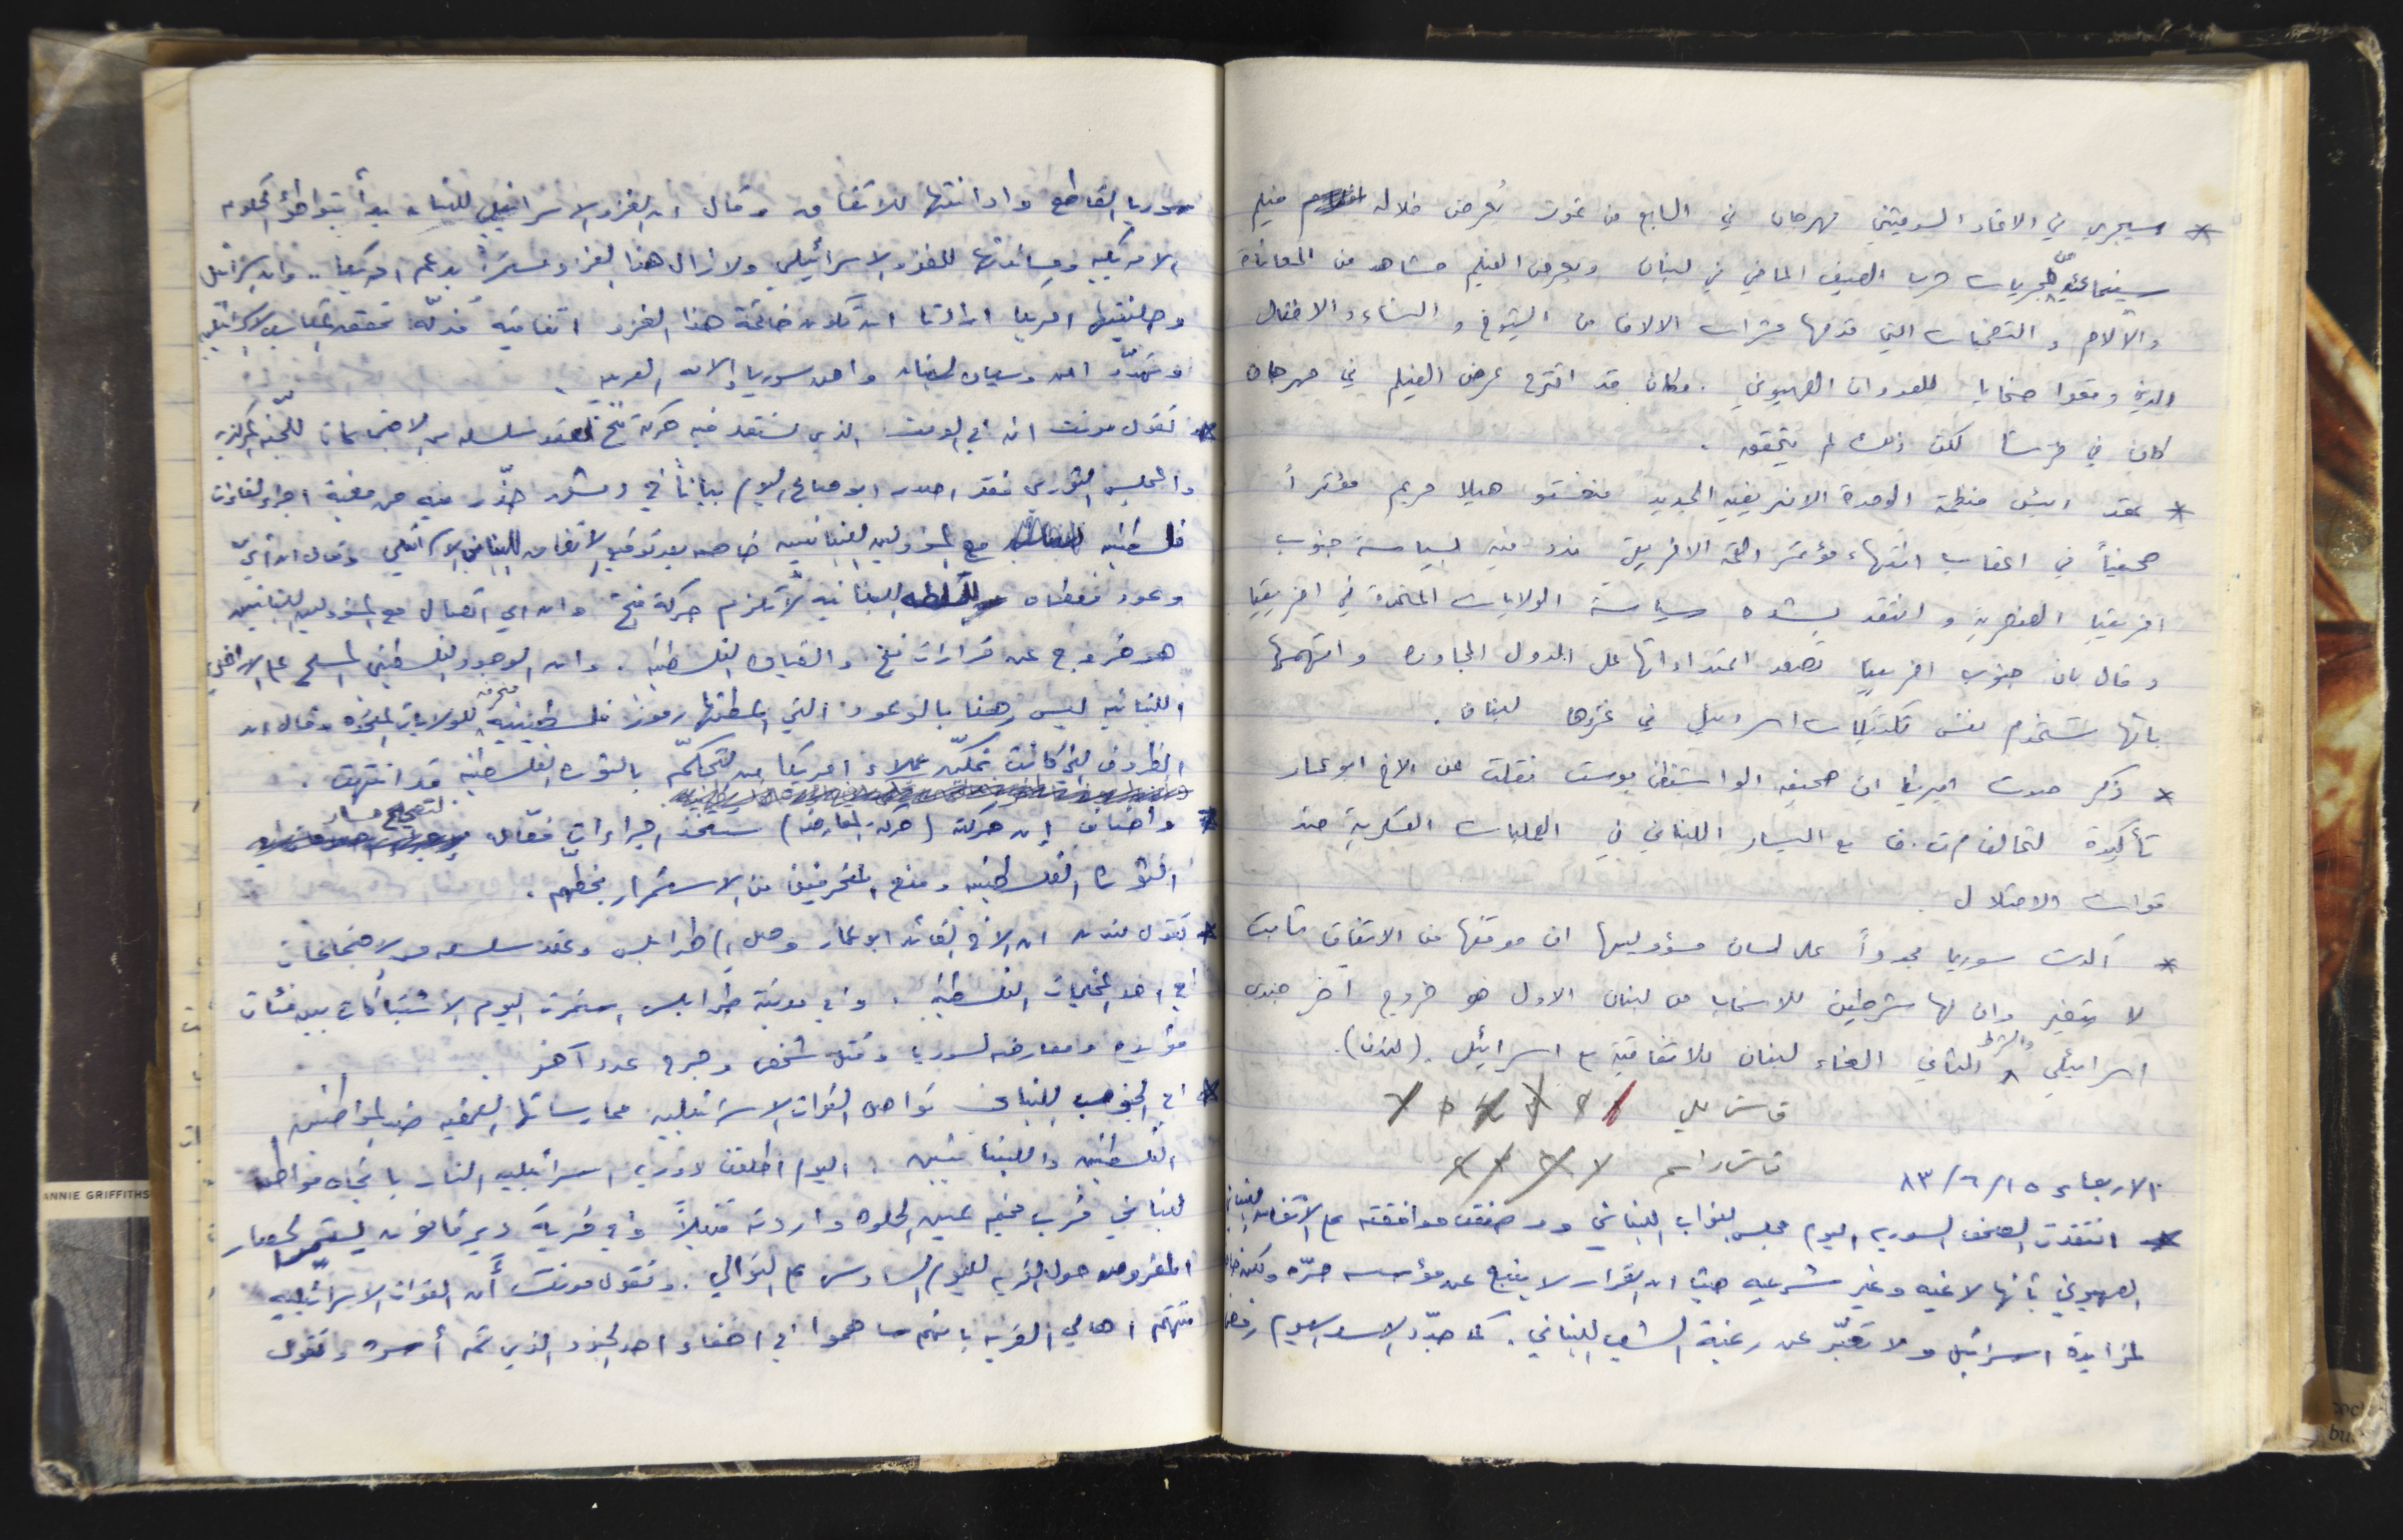 * سيجري في الاتحاد السوفيتي مهرجان في السابع من تموز يُعرض خلاله فيلم
سينمائي عن مجريات حرب الصيف الماضي في لبنان ويعرض الفيلم مشاهد من المعاناة
والآلام و التضحيات التي قدمها عشرات الالاف من الشيوخ و النساء و الاطفال
الذين وقعوا ضحايا للعدوان الصهيوني . وكان قد اقترح عرض الفيلم في مهرجان
كان في فرنسا لكن ذلك لم يتحقق .
* عقد رئيس منظمة الوحدة الافريقية الجديد منغستو هيلا مريم مؤتمراً
صحفياً في اعقاب انتهاء مؤتمر القمة الافريقي ندد فيه بسياسة جنوب
افريقيا العنصرية و انتقد بشده سياسة الولايات المتحدة في افريقيا
وقال بان جنوب افريقيا تصعد اعتداءاتها على الدول المجاوره واتهمها
بانها تستخدم نفس تكتيكات اسرائيل في غزوها لبنان .
* ذكر صوت امريكا ان صحيفة الواشنطن بوست نقلت عن الاخ ابو عمار
تأكيدة لتحالف م.ت.ف مع اليسار اللبناني في العمليات العسكرية ضد
قوات الاحتلال .
* اكدت سوريا مجدداً على لسان مسؤوليها ان موقفها من الاتفاق ثابت
لا يتغير وان لها شرطين للانسحاب من لبنان الاول هو خروج آخر جندي
اسرائيلي والشرط الثاني الغاء لبنان للاتفاقية مع اسرائيل . (لندن).
الاربعاء ١٥/٦/٨٣
* انتقدت الصحف السوريه اليوم مجلس النواب اللبناني ووصفت موافقته على الاتفاق اللبناني
الصهيوني بأنها لاغيه وغير شرعيه حيث ان القرار لا ينبع عن مؤسسه حرّه ولكن
لمزايدة اسرائيل ولا تعبّر عن رغبة الشعب اللبناني . كما جدّد الاسد اليوم رفض
سوريا القاطع وادانتها للاتفاق وقال ان الغزو الاسرائيلي للبنان بدأ بتواطؤ الحكومه
الامريكيه ومساندتها للغزو الاسرائيلي ولا زال هذا الغزو مستمراً بدعم امريكيا .. وان اسرائيل
وحليفتها امريكا ارادتا ان تكون خاتمة هذا الغزو اتفاقية مذلّه تحقق المكاسب لاسرائيل
وتهدّد امن وسيادة لبنان وامن سوريا والامه العربيه .
* تقول مونت انه في الوقت الذي تستعد فيه حركة فتح لعقد سلسله من الاجتماعات للّجنه المركزيه
والمجلس الثوري فقد اصدر ابو صالح اليوم بياناً في دمشق حذّر فيه من مغبة اجراء لقاءات
فلسطينيه مع المسؤولين اللبنانيين خاصه بعد توقيع الاتفاق اللبناني الاسرائيلي وقال ان أيّ
وعود معطاه للسلطه اللبنانيه لا تلزم حركة فتح وان اي اتصال مع المسؤولين اللبنانيين
هو خروج عن قرارات فتح والقياده الفلسطينيه . وان الوجود الفلسطيني المسلح على الاراضي
اللبنانيه ليس رهنا بالوعود التي اعطتها رموز فلسطينيه منحرفه للولايات المتحده وقال ان
الظروف التي كانت تمكّن عملاء امريكا من التحكّم بالثوره الفلسطينيه قد انتهت .
* واضاف إن حركته (حركة المعارضه) ستتخذ اجراءات فعّاله لتصحيح مسار
الثوره الفلسطينيه ومنع المنحرفين من الاستمرار بخطهم .
* تقول لندن ان الاخ القائد ابو عمار وصل الى طرابلس وعقد سلسله من الاجتماعات
في احد المخيمات الفلسطينيه . وفي مدينة طرابلس استمرت اليوم الاشتباكات بين فئات
مؤيده ومعارضه لسوريا وقتل شخص وجرح عدد آخر .
* في الجنوب اللبناني تواصل القوات الاسرائيليه ممارساتها القمعيه ضد المواطنين
الفلسطينيين واللبنانيين . اليوم اطلقت دوريه اسرائيليه النار باتجاه مواطن
لبناني قرب مخيم عين الحلوه واردته قتيلاً وفي قرية دير قانون يستمر الحصار
المفروض حول القريه لليوم السادس على التوالي . وتقول مونت أن القوات الاسرائيليه
تتهم اهالي القريه بانهم ساهموا في اخفاء احد الجنود الذين تم أسره وتقول
ANNIE GRIFFITHS